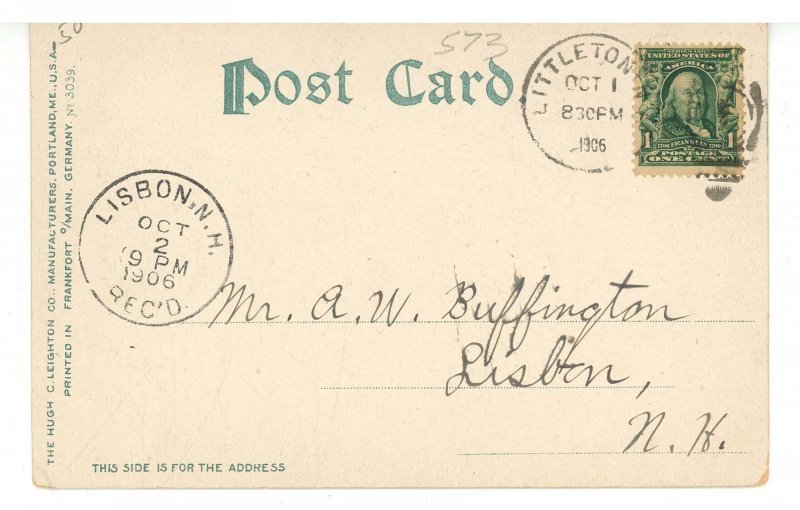 573
Post Card.
LITTLETON
OCT 1
830PM
1906
SERIES 1902
UNITED STATES OF
AMERICA
1790 FRANKLIN 1790
1 POSTAGE 1
ONE CENT
LISBON, N.H.
OCT
2
9 PM
1906
REC'D.
Mr. A. W. Buffington
Lisbon,
N. H.
THIS SIDE IS FOR THE ADDRESS
THE HUGH C. LEIGHTON CO., MANUFACTURERS, PORTLAND, ME., U.S.A.
PRINTED IN FRANKFORT O/MAIN, GERMANY. No 3039.